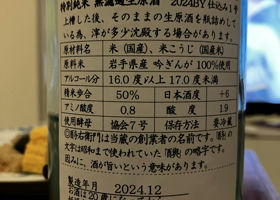 特別純米 無濾過生原酒 2024BY 仕込み1号
上槽した後、そのままの生原酒を瓶詰めして
いる為、滓が多少沈殿する場合があります。
原材料名 米(国産)、米こうじ(国産米)
原料米 岩手県産 吟ぎんが 100%使用
アルコール分 16.0 度以上 17.0 度未満
精米歩合 50% 日本酒度 +6
アミノ酸度 0.8 酸度 1.9
使用酵母 協会7号 保存方法 要冷蔵
右衛門は当蔵の創業者の名前です。
文字は昭和まで使われていた の略字です。
因みに、酒が旨いという意味があります。
製造年月 2024.12
お酒は20歳に